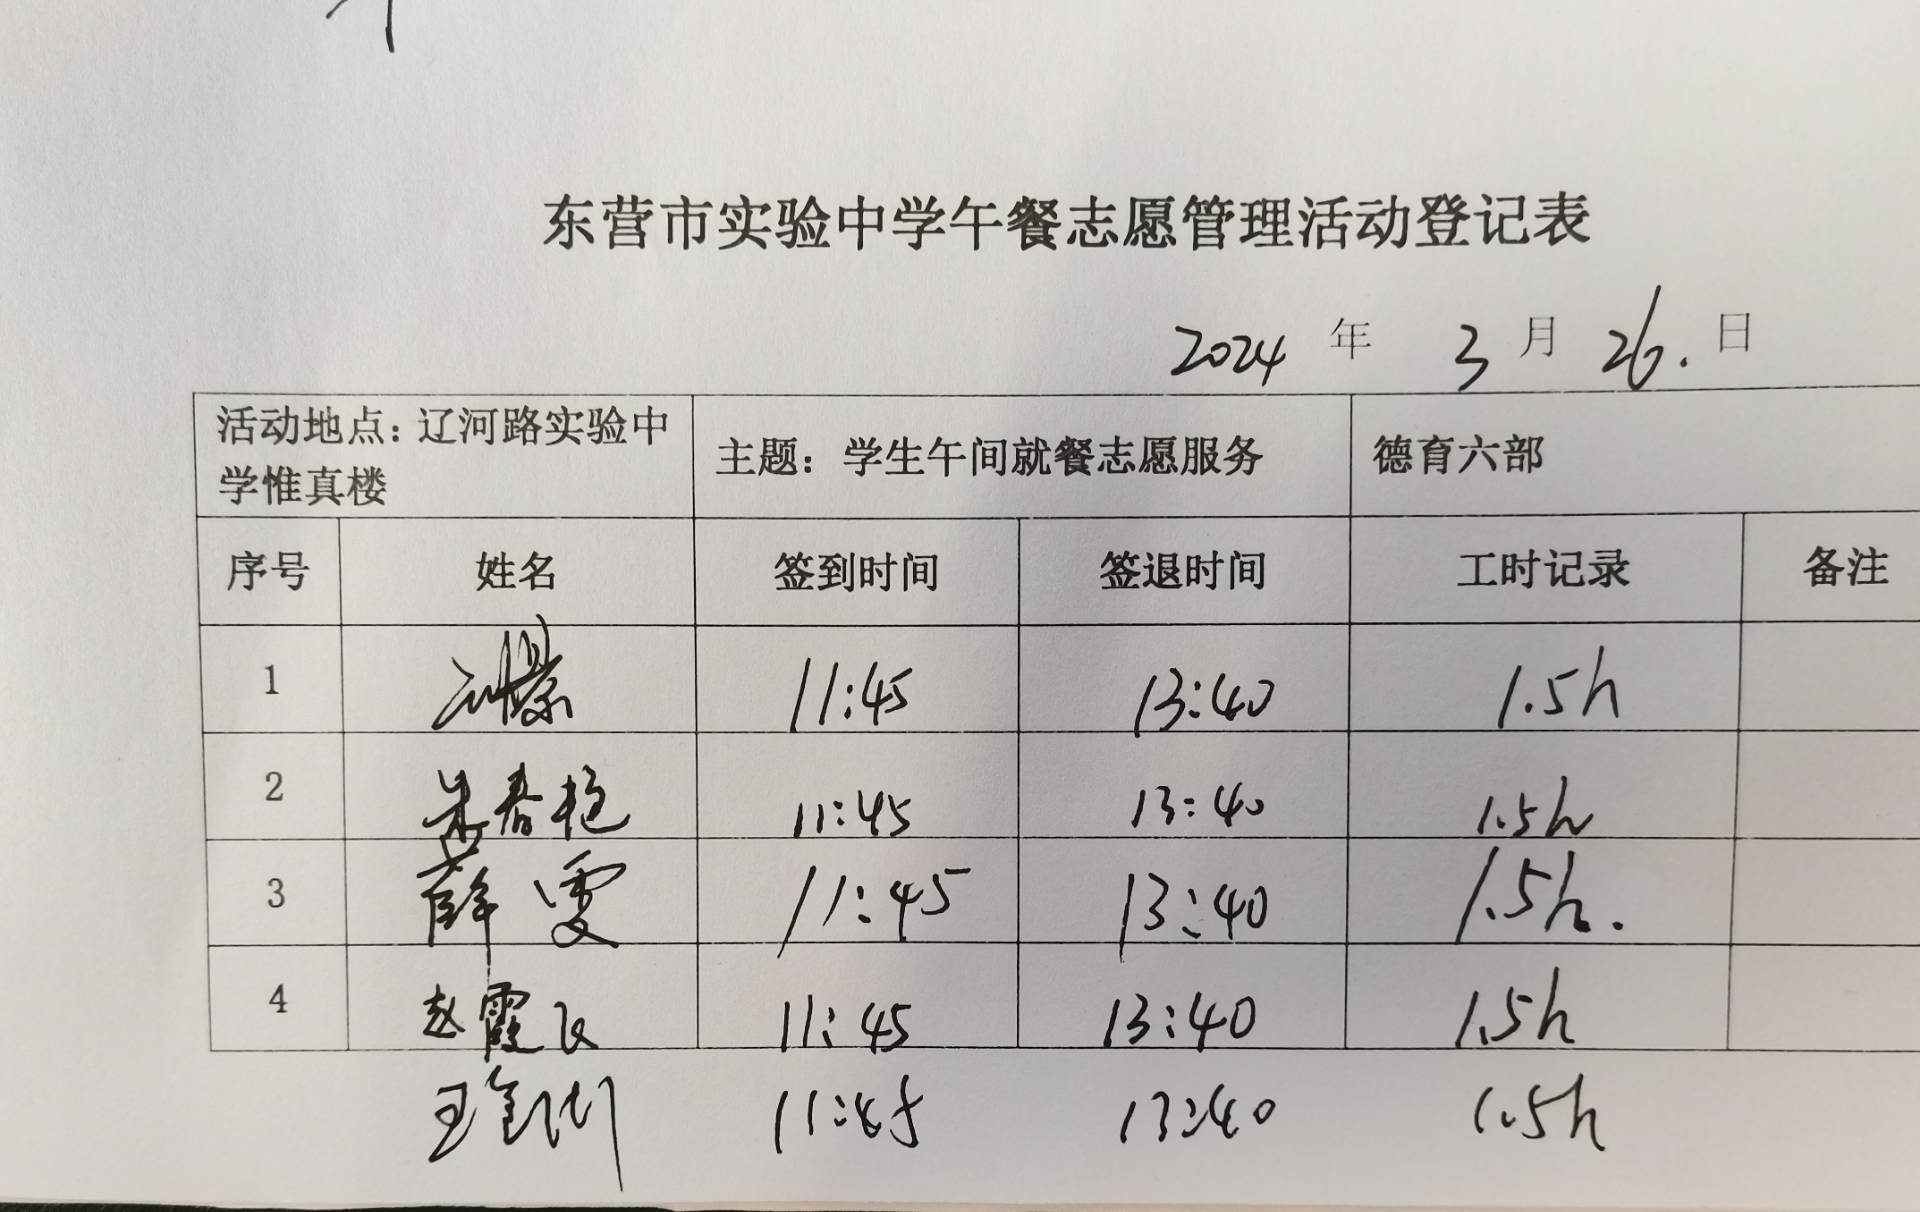 东营市实验中学午餐志愿管理活动登记表
2024 年 3 月 26. 日
活动地点：辽河路实验中学惟真楼 主题：学生午间就餐志愿服务 德育六部
序号 姓名 签到时间 签退时间 工时记录 备注
1 11:45 13:40 1.5h
2 朱春艳 11:45 13:40 1.5h
3 薛雯 11:45 13:40 1.5h.
4 赵霞飞 11:45 13:40 1.5h
11:45 13:40 1.5h